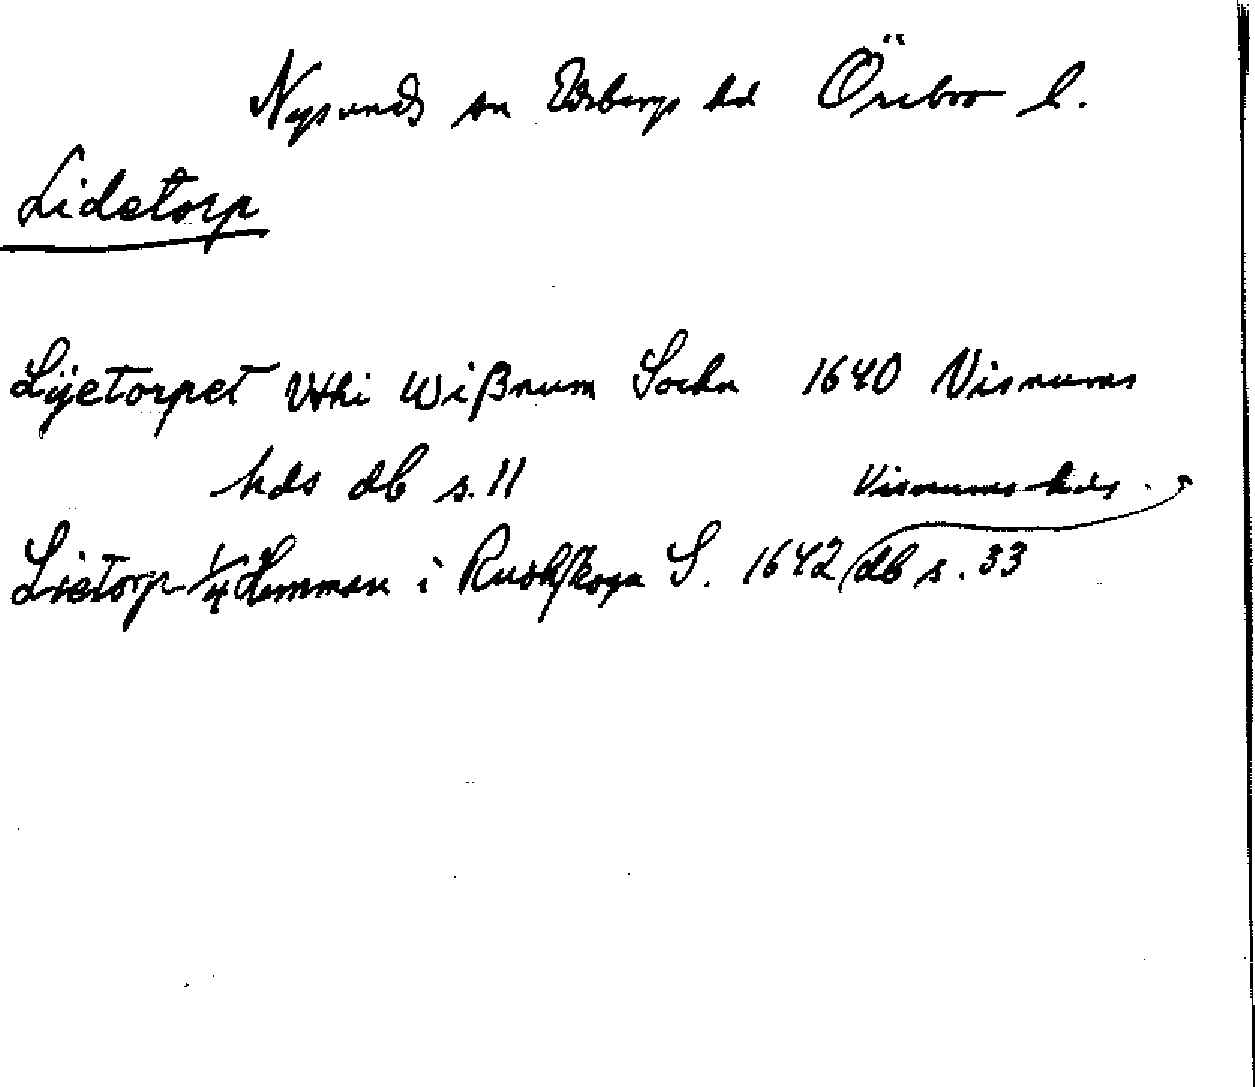 Nysunds sn Edsbergs hd Örebro l.
Lidetorp
Lijetorpet Vthi Wißnum Sochn 1640 Visnums
hds db s. 11 Visnums hds
Lietorp 1/4 Hemman i Rudhskoga S. 1642 db s. 33